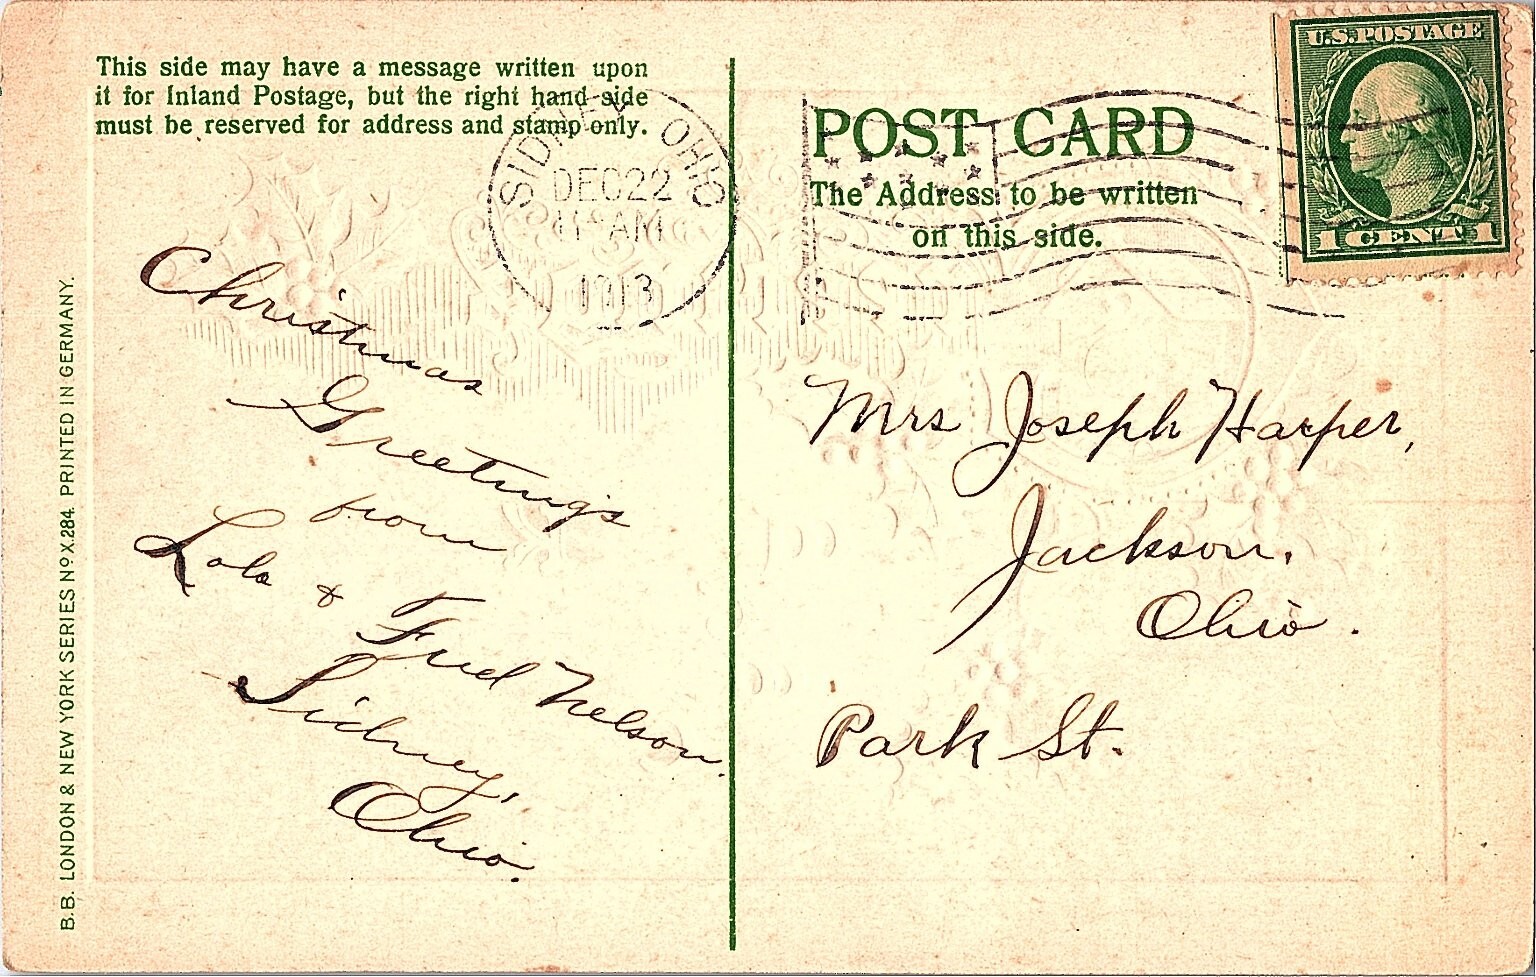 This side may have a message written upon
it for Inland Postage, but the right hand side
must be reserved for address and stamp only.
SIDNEY OHIO
DEC 22
11 AM
1913
Christmas
Greetings
from
Lola & Fred Nelson.
Sidney,
Ohio.
B.B. LONDON & NEW YORK SERIES Nº X.284. PRINTED IN GERMANY.
POST CARD
The Address to be written
on this side.
U.S. POSTAGE
1 CENT 1
Mrs Joseph Harper,
Jackson.
Ohio.
Park St.